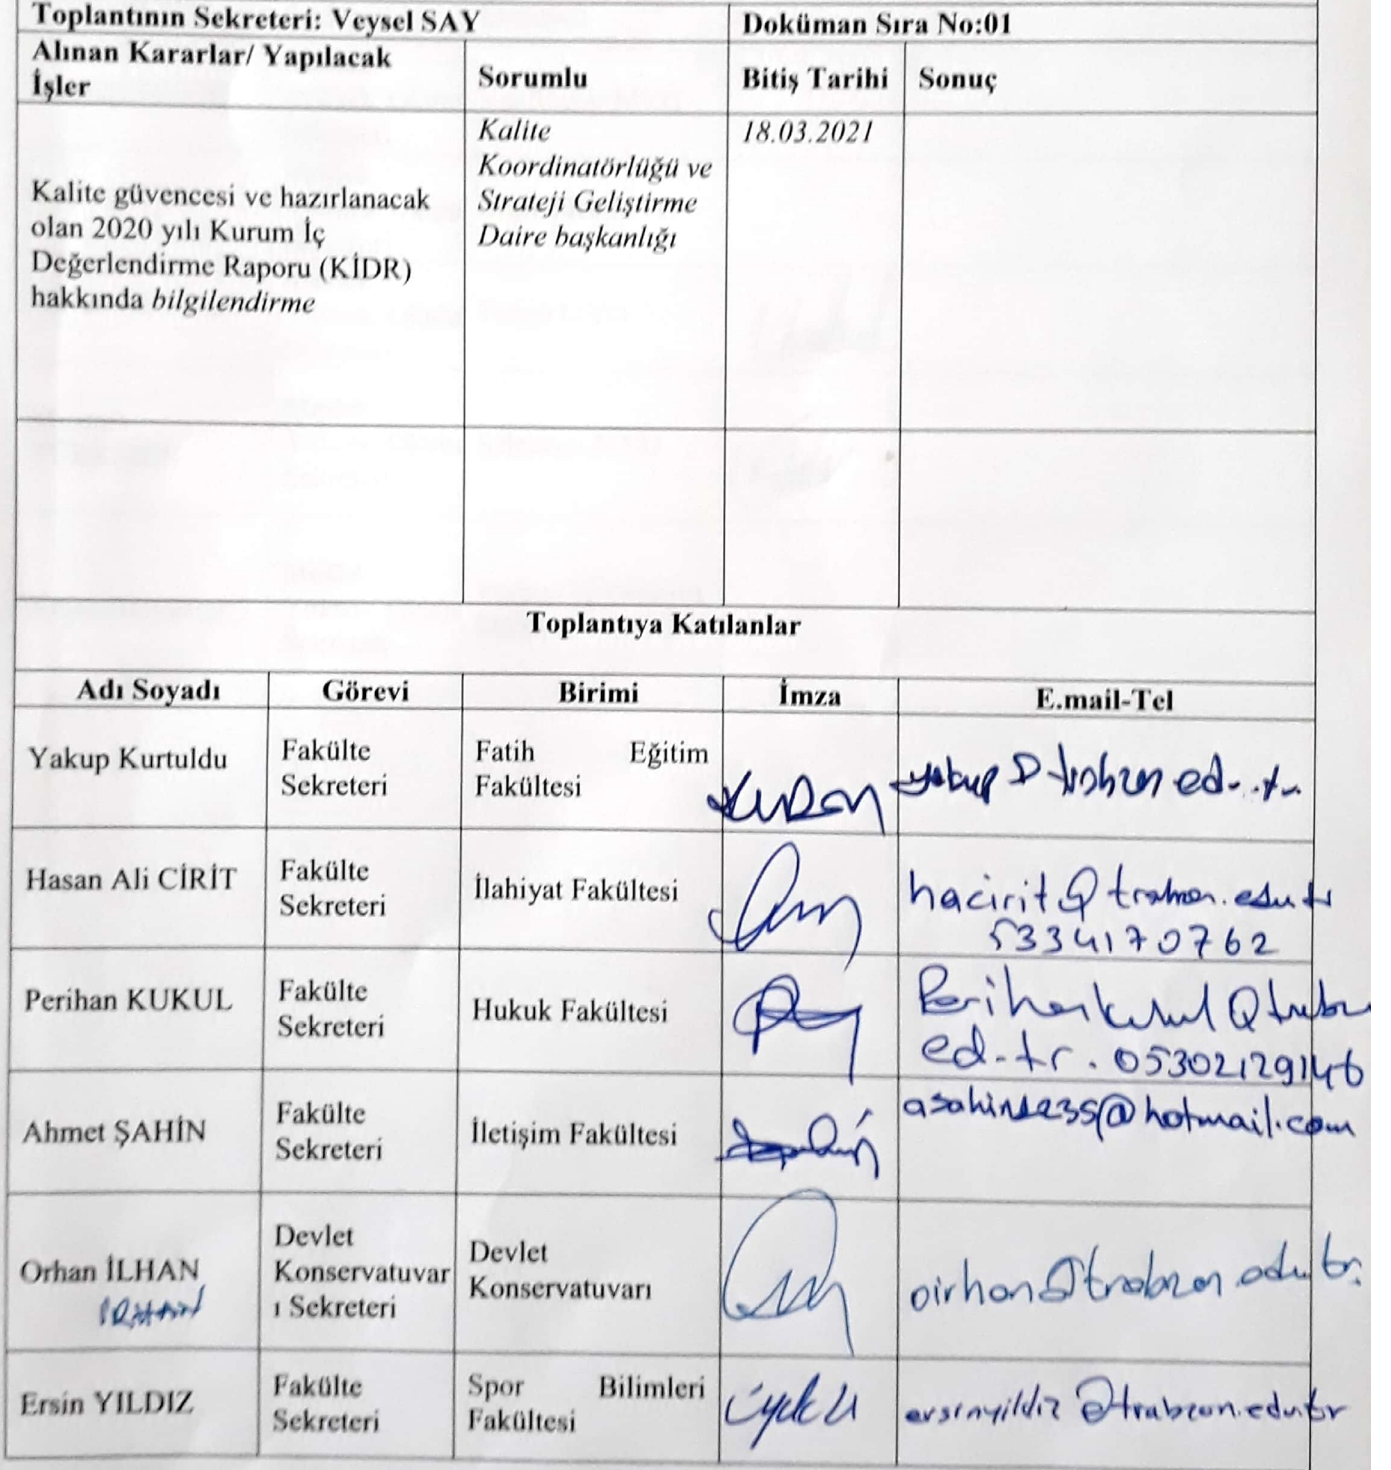 Toplantının Sekreteri: Veysel SAY
Doküman Sıra No:01
Alınan Kararlar/ Yapılacak
İşler
Sorumlu
Bitiş Tarihi
Sonuç
Kalite güvencesi ve hazırlanacak
olan 2020 yılı Kurum İç
Değerlendirme Raporu (KİDR)
hakkında bilgilendirme
Kalite
Koordinatörlüğü ve
Strateji Geliştirme
Daire başkanlığı
18.03.2021
Toplantıya Katılanlar
Adı Soyadı
Görevi
Birimi
İmza
E.mail-Tel
Yakup Kurtuldu
Fakülte
Sekreteri
Fatih Eğitim
Fakültesi
Hasan Ali CİRİT
Fakülte
Sekreteri
İlahiyat Fakültesi
hacirit@trabzon.edu.tr
5334170762
Perihan KUKUL
Fakülte
Sekreteri
Hukuk Fakültesi
05302129146
Ahmet ŞAHİN
Fakülte
Sekreteri
İletişim Fakültesi
Orhan İLHAN
Devlet
Konservatuvar
ı Sekreteri
Devlet
Konservatuvarı
oirhan@trabzon.edu.tr
Ersin YILDIZ
Fakülte
Sekreteri
Spor Bilimleri
Fakültesi
ersinyildiz@trabzon.edu.tr